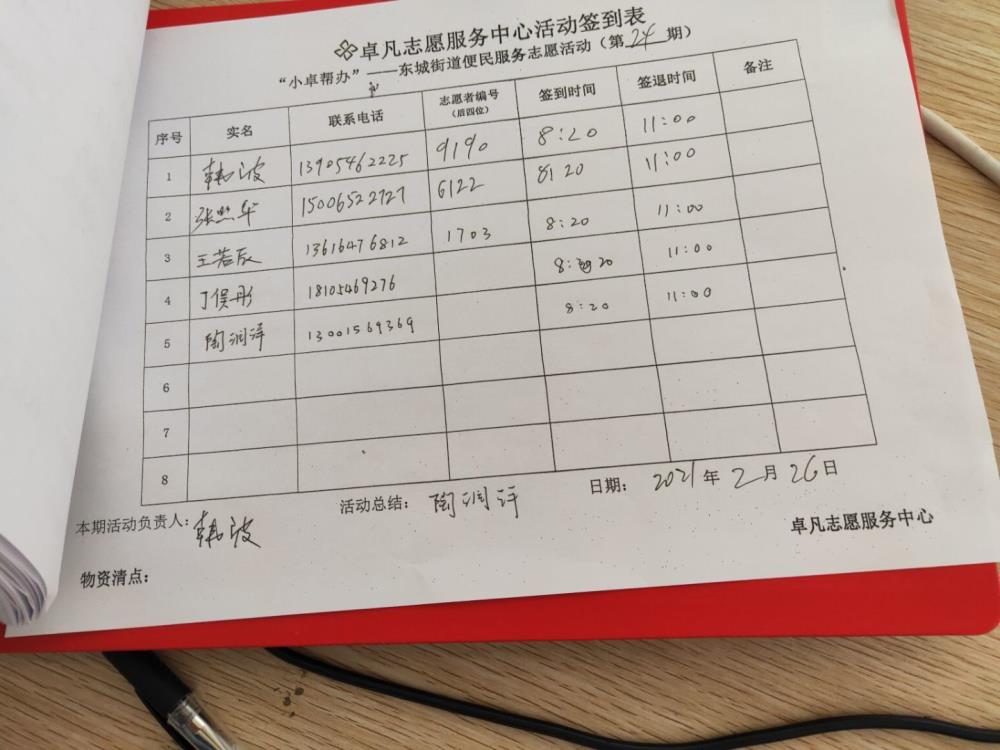 卓凡志愿服务中心活动签到表
“小卓帮办”——东城街道便民服务志愿活动（第24期）
序号 实名 联系电话 志愿者编号（后四位） 签到时间 签退时间 备注
1 韩波 13905462225 9190 8:20 11:00
2 张照华 15006522727 6122 8:20 11:00
3 王若辰 13616476812 1703 8:20 11:00
4 丁俣彤 18105469276 8:20 11:00
5 陶润泽 13001569369 8:20 11:00
6
7
8
本期活动负责人：韩波 活动总结：陶润泽 日期：2021年2月26日
物资清点： 卓凡志愿服务中心